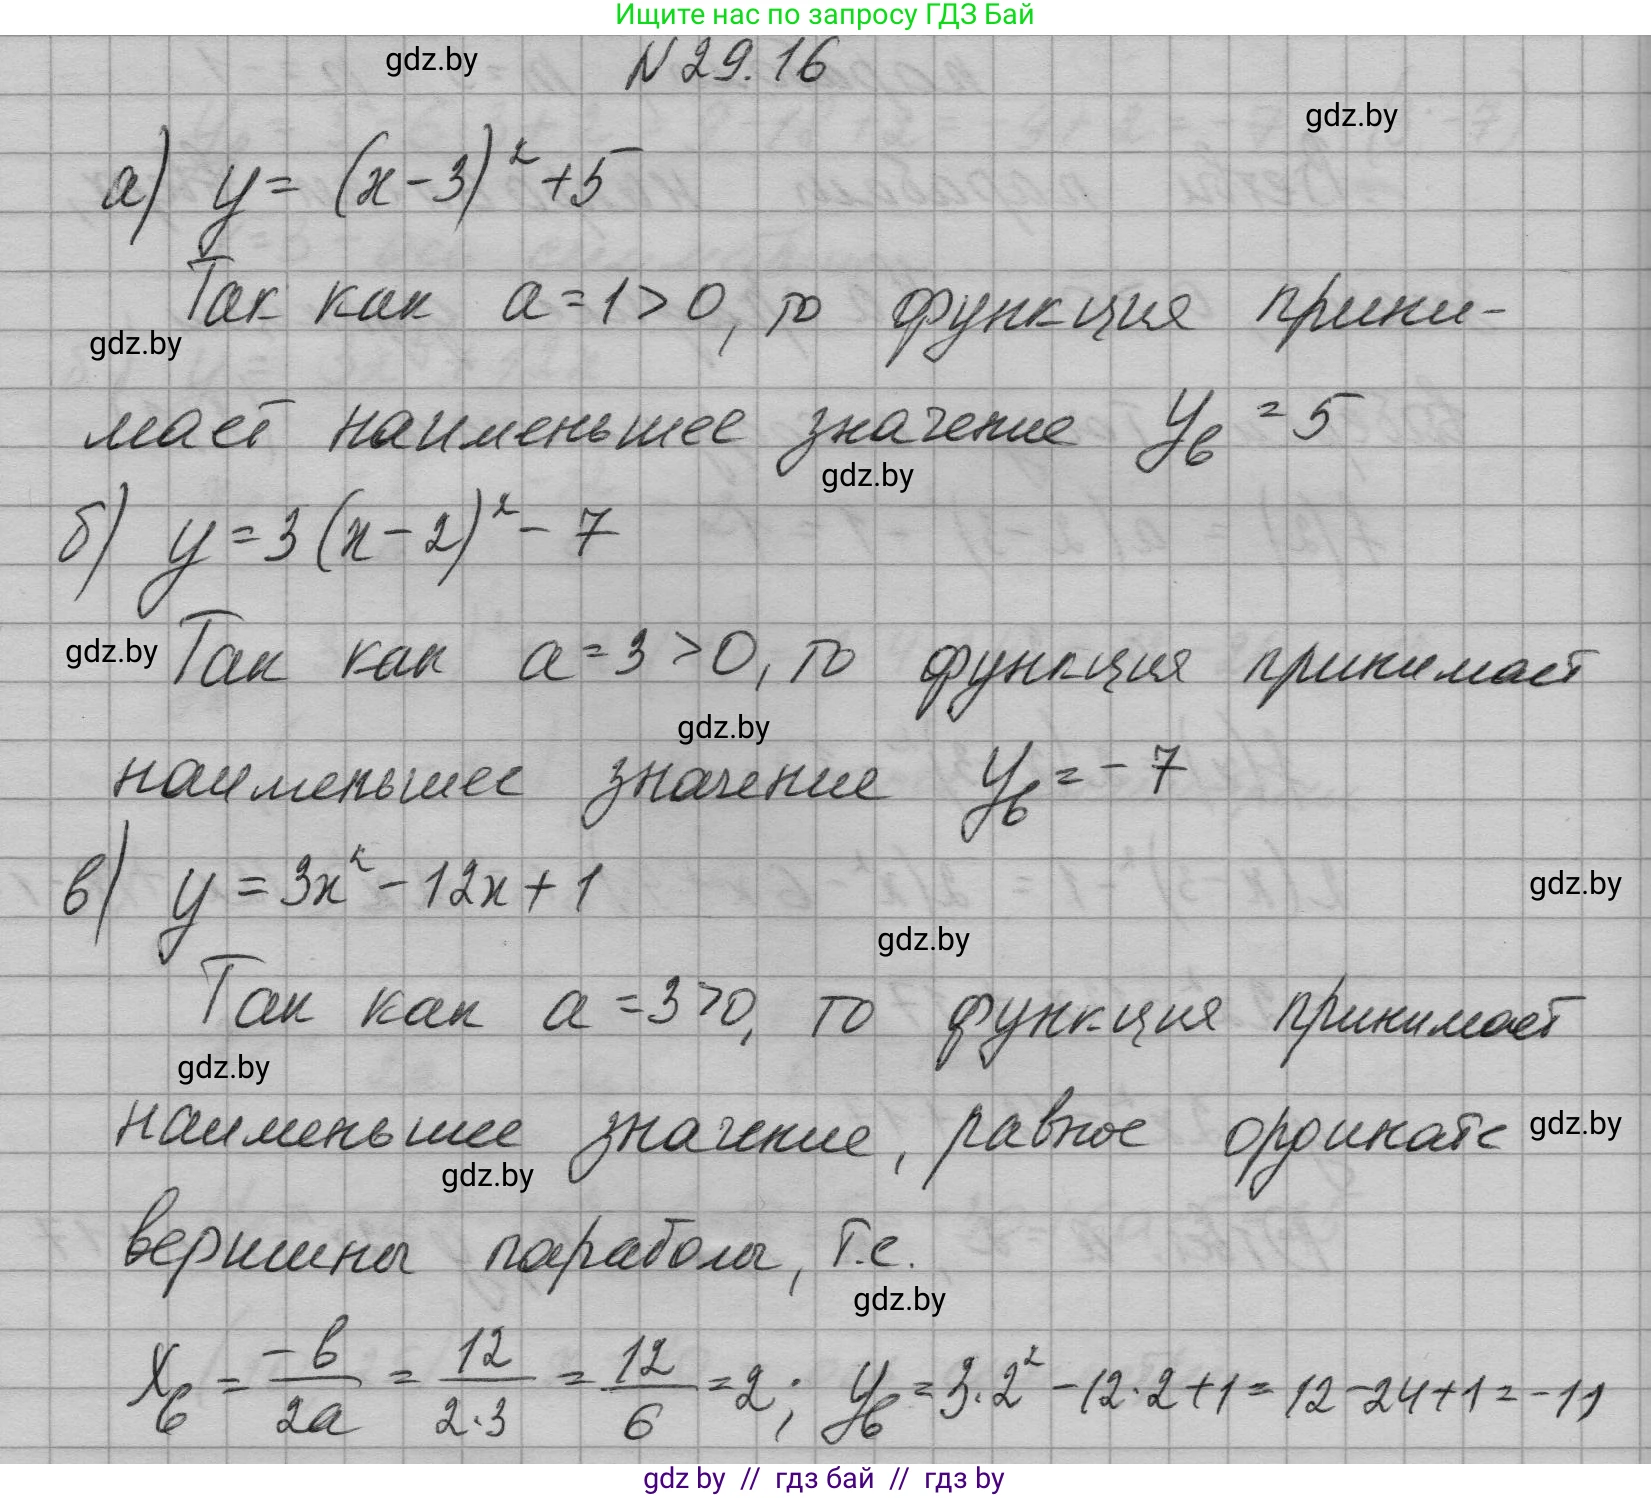 Ищите нас по запросу ГДЗ Бай
gdz.by
N 29.16
gdz.by
а) y = (x-3)² +5
Так как a=1>0, то функция прини-
gdz.by
мает наименьшее значение yв = 5
gdz.by
б) y = 3(x-2)² - 7
gdz.by
Так как a=3>0, то функция принимает
gdz.by
наименьшее значение yв = -7
в) y = 3x² - 12x + 1
gdz.by
gdz.by
Так как a=3>0, то функция принимает
gdz.by
наименьшее значение, равное ординате
gdz.by
gdz.by
вершины параболы, т.е.
gdz.by
xв = -b/2a = 12/2·3 = 12/6 = 2; yв = 3·2² - 12·2 + 1 = 12 - 24 + 1 = -11
gdz by // гдз бай // гдз by